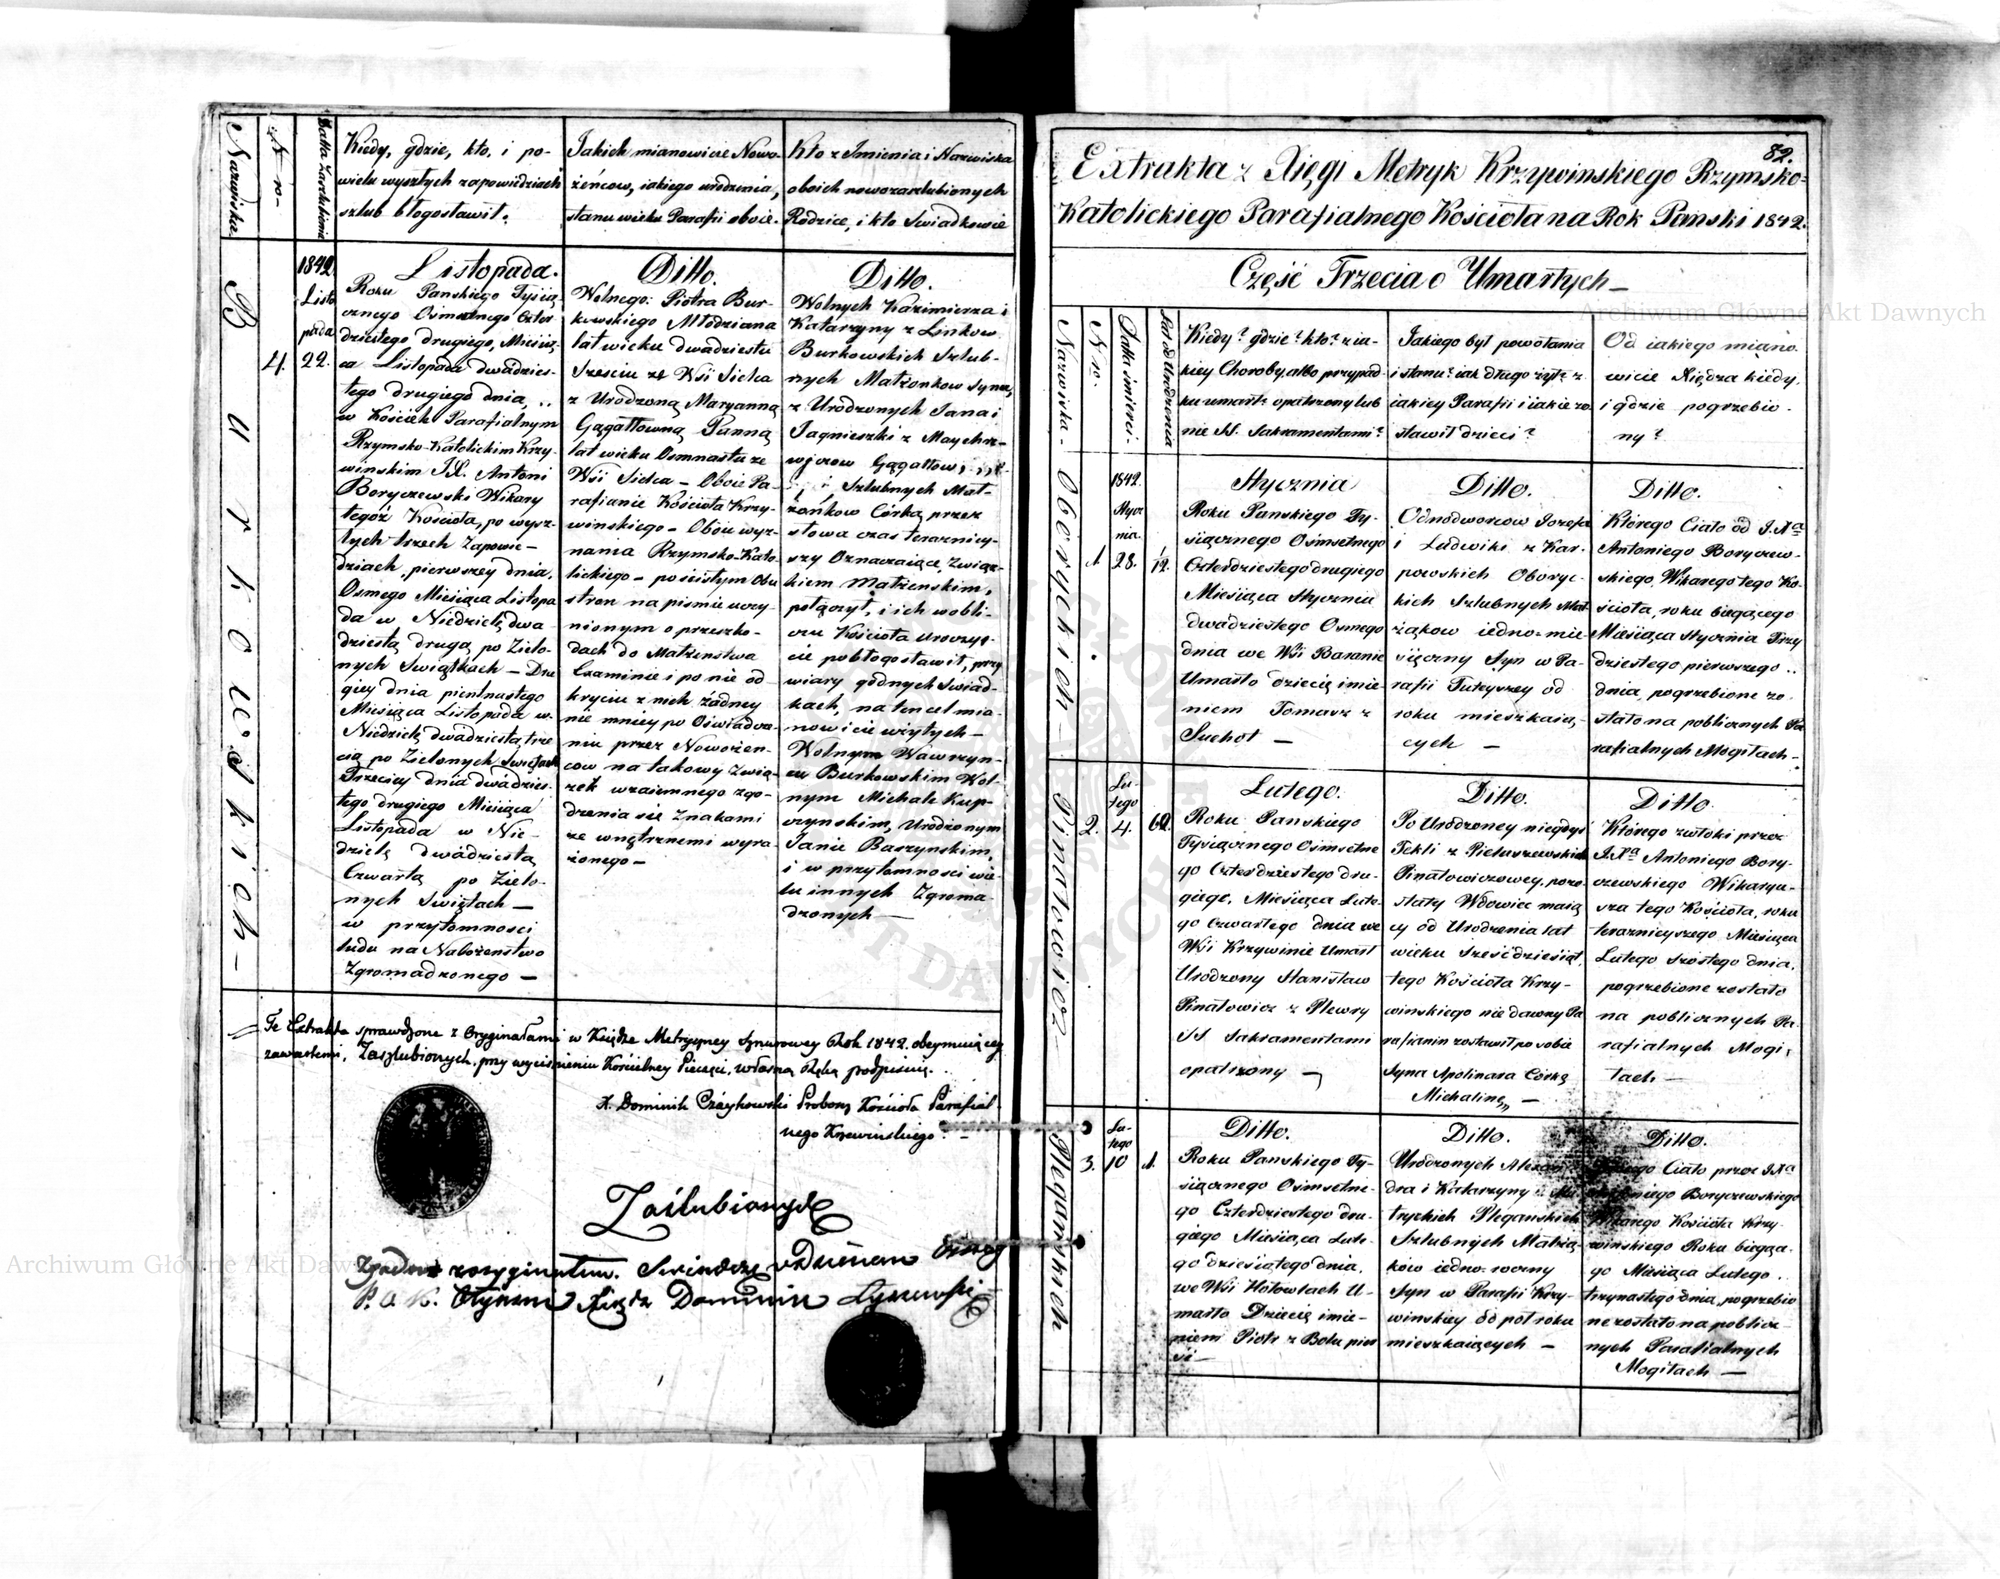 Nazwiska
N-ro-
Datta Zaszlubienia
Kiedy, gdzie, kto, i po-
wielu wyszłych zapowiedziach
szlub błogosławił.
Jakich mianowicie Nowo-
żeńcow, iakiego urodzenia,
stanu wieku Parafii oboie.
Kto z Imienia i Nazwiska
oboich nowozaszlubionych
Rodzice, i kto Swiadkowie
Burkowskich-
4.
1842
Listo
pada
22.
Listopada.
Roku Panskiego Tysią-
cznego Osmsetnego Czter-
dziestego, drugiego, Miesią-
ca Listopada dwadzies-
tego drugiego dnia,
w Kościele Parafialnym
Rzymsko-Katolickim Krzy-
winskim JX. Antoni
Boryczewski Wikary
tegóż Kościoła, po wysz-
łych trzech Zapowie-
dziach, pierwszey dnia,
Osmego Miesiąca Listopa
da w Niedzielę dwa-
dziestą drugą po Zielo-
nych Swiątkach - Dru
giey dnia pientnastego
Miesiąca Listopada w
Niedzielę dwadziestą trze
cią po Zielonych Swiątkach
Trzeciey dnia dwadzies-
tego drugiego Miesiąca
Listopada w Nie-
dzielę dwadziestą
Czwartą po Zielo-
nych Swiątach -
w przytomnosci
ludu na Nabożenstwo
Zgromadzonego -
Ditto.
Wolnego: Piotra Bur-
kowskiego Młodziana
lat wieku dwadziestu
Szesciu ze Wśi Sielca
z Urodzoną Maryanną
Gągałłowną Panną
lat wieku Osmnastu ze
Wśi Sielca - Oboie Pa-
rafianie Kościoła Krzy-
winskiego - Oboie wyz-
nania Rzymsko-Kato-
lickiego - po ścisłym Obu
stron na pismie uczy-
nionym o przeszko-
dach do Małżenstwa
Examinie i po nie od
kryciu z nich żadney
nie mniey po Oświadcza-
niu przez Nowożen-
cow na takowy Zwią-
zek wzaiemnego zgo-
dzenia się Znakami
ze wnętrznemi wyra-
żonego -
Ditto.
Wolnych Kazimierza i
Katarzyny z Linkow
Burkowskich Szlub-
nych Małżonkow Syna,
z Urodzonych Jana i
Jagnieszki z Maychrz-
wjczow Gągałłow,
Szlubnych Mał-
żonkow Córką przez
słowa czas terazniey-
szy Oznaczaiące, Związ-
kiem Małzenskim,
połączył, i ich w obli-
czu Kościoła uroczys-
cie pobłogosławił, przy
wiary godnych Swiad-
kach, na ten cel mia-
nowicie użytych -
Wolnym Wawrzyn-
cu Burkowskim Wol-
nym Michale Kup-
czynskim, Urodzonym
Janie Baszynskim,
i w przytomnosci wie-
lu innych Zgroma-
dzonych -
Te Extrakta sprawdzone z Oryginałami w Księdze Metryczney Sznurowey Rok 1842 obeymuiącey
zawartemi, Zaszlubionych, przy wyciśnieniu Kościelney Pieczęci, własną Ręką podpisuię.
X. Dominik Czaykowski Proboszcz Kościoła Parafial-
nego Krzewinskiego -
Zaślubionych
Zgodno z oryginałem. Swiadczę
Xiądz Dominik
82.
Extrakta z Xięgi Metryk Krzywinskiego Rzymsko-
Katolickiego Parafialnego Kościoła na Rok Panski 1842.
Część Trzecia o Umarłych -
Nazwiska -
N ro.
Datta śmierci -
Lat od Urodzenia
Kiedy? gdzie? kto? z ia-
kiey Choroby, albo przypad-
ku umarł? opatrzony lub
nie SS. Sakramentami?
Jakiego był powołania
i stanu? iak długo żył? z
iakiey Parafii i iakie zo-
stawił dzieci?
Od iakiego miano-
wicie Xiędza kiedy,
i gdzie pogrzebio-
ny?
Oboryckich -
1.
1842.
Stycz
nia.
28.
1/12.
Stycznia
Roku Panskiego Ty-
siącznego Ośmsetnego
Czterdziestego drugiego
Miesiąca Stycznia
dwadziestego Osmego
dnia we Wśi Baranie
Umarło dziecię imie-
niem Tomasz z
Suchot -
Ditto.
Odnodworcow Jozefa
i Ludwiki z Kar-
powskich Oboryc-
kich Szlubnych Mał-
żąkow iedno-mie-
sięczny Syn w Pa-
rafii Tuteyszey od
roku mieszkaią-
cych -
Ditto.
Którego Ciało od J.Xa
Antoniego Boryczew-
skiego, Wikarego tego Ko-
ścioła, roku biegącego
Miesiąca Stycznia Trzy
dziestego pierwszego
dnia, pogrzebione zo-
stało na publicznych Pa
rafialnych Mogiłach -
Pinatowicz
2.
Lu-
tego
4.
60.
Lutego.
Roku Panskiego
Tysiącznego Ośmsetne
go Czterdziestego dru-
giego, Miesiąca Lute-
go Czwartego dnia we
Wśi Krzywinie Umarł
Urodzony Stanisław
Pinatowicz z Plewry
SS Sakramentami
opatrzony -
Ditto.
Po Urodzoney niegdyś
Tekli z Pietuszewskich
Pinatowiczowey, pozo-
stały Wdowiec maią
cy od Urodzenia lat
wieku Sześćdziesiąt,
tego Kościoła Krzy-
winskiego nie dawny Pa
rafianin zostawił po sobie
Syna Apolinara Córkę
Michalinę -
Ditto.
Którego zwłoki przez
J.Xa Antoniego Bory-
czewskiego Wikaryu-
sza tego Kościoła, roku
teraznieyszego Miesiąca
Lutego Szostego dnia,
pogrzebione zostało
na publicznych Pa-
rafialnych Mogi-
łach -
Pleganskich
3.
Lu-
tego
10
1.
Ditto.
Roku Panskiego Ty-
siącznego Ośmsetne-
go Czterdziestego dru-
giego Miesiąca Lute-
go dziesiątego dnia,
we Wśi Hołowlach U-
marło Dziecię imie-
niem Piotr z Bolu pier
śi -
Ditto.
Urodzonych Alexan-
dra i Katarzyny z
Pleganskich
Szlubnych Małżą-
kow iedno-roczny
Syn w Parafii Krzy-
winskiey od pół roku
mieszkaiących -
Ditto.
Ciało przez J.Xa
Boryczewskiego
Wikarego Kościoła Krzy-
winskiego Roku biegąca-
go Miesiąca Lutego
trzynastego dnia, pogrzebio
ne zostało na publicz-
nych Parafialnych
Mogiłach -
Archiwum Główne Akt Dawnych
Archiwum Główne Akt Dawnych